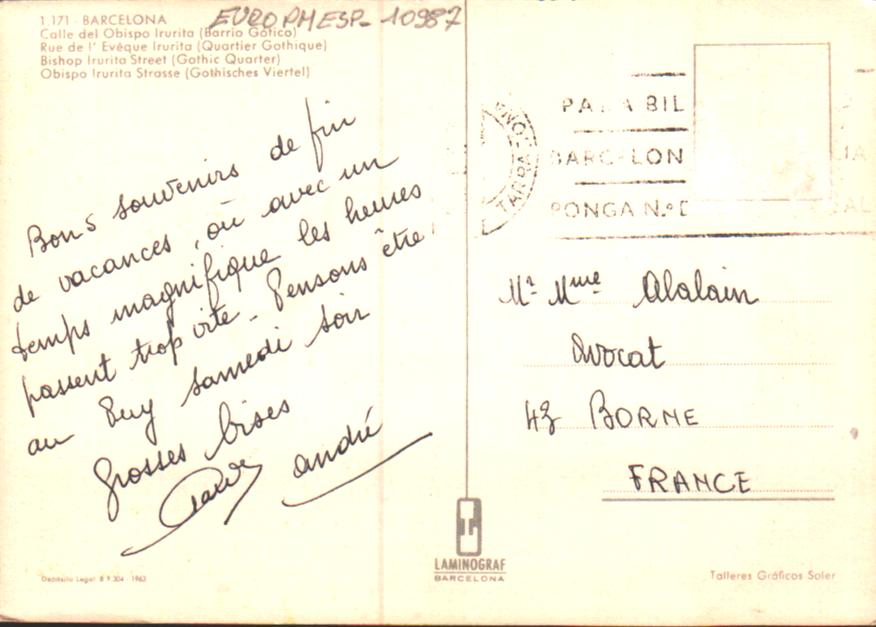 EUROPHESP- 10987
1.171 - BARCELONA
Calle del Obispo Irurita (Barrio Gótico)
Rue de l' Evéque Irurita (Quartier Gothique)
Bishop Irurita Street (Gothic Quarter)
Obispo Irurita Strasse (Gothisches Viertel)
Bons souvenirs de fin
de vacances, où avec un
temps magnifique les heures
passent trop vite - Pensons être
au Puy samedi soir
Grosses bises
andré
PARA BIL
BARCELON
PONGA N.º D
Mr Mme Alalain
Avocat
43 BORNE
FRANCE
LAMINOGRAF
BARCELONA
Depósito Legal B 9.304 - 1963
Talleres Gráficos Soler